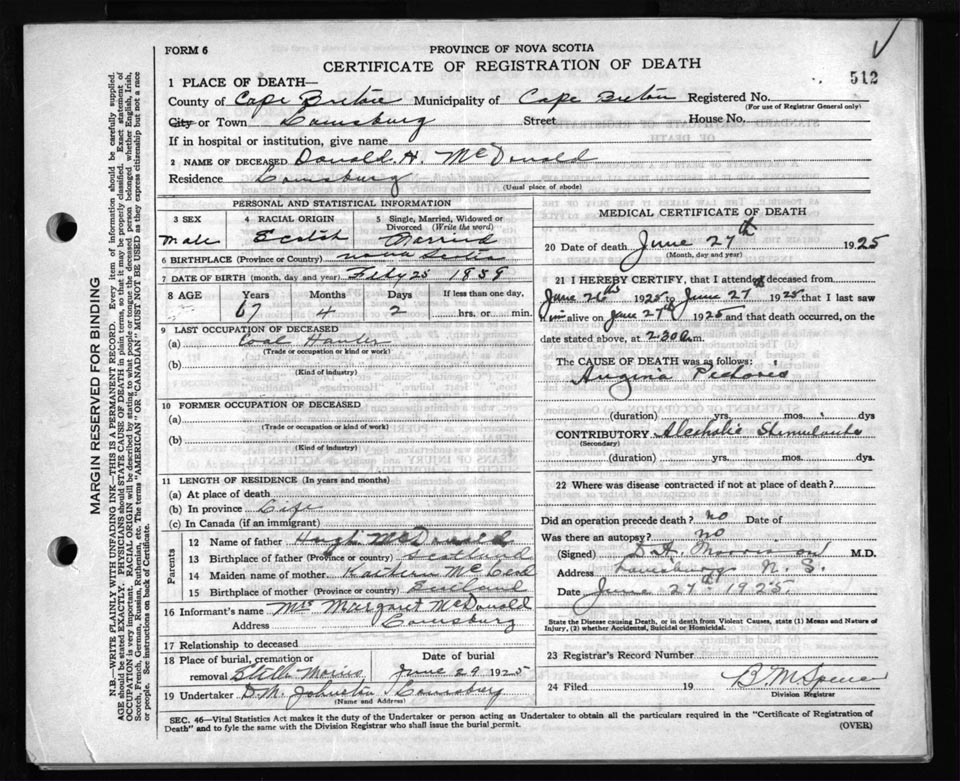 FORM 6
PROVINCE OF NOVA SCOTIA
CERTIFICATE OF REGISTRATION OF DEATH
512
1 PLACE OF DEATH—
County of Cape Breton Municipality of Cape Breton Registered No.
(For use of Registrar General only)
City or Town Louisburg Street House No.
If in hospital or institution, give name
2 NAME OF DECEASED Donald. H. McDonald
Residence Louisburg
(Usual place of abode)
PERSONAL AND STATISTICAL INFORMATION
3 SEX
Male
4 RACIAL ORIGIN
Scotch
5 Single, Married, Widowed or Divorced (Write the word)
Married
6 BIRTHPLACE (Province or Country) Nova Scotia
7 DATE OF BIRTH (month, day and year) 25 18
8 AGE Years Months Days If less than one day,
67 4 2 hrs. or min.
9 LAST OCCUPATION OF DECEASED
(a) Coal
(Trade or occupation or kind or work)
(b)
(Kind of industry)
10 FORMER OCCUPATION OF DECEASED
(a)
(Trade or occupation or kind of work)
(b)
(Kind of industry)
11 LENGTH OF RESIDENCE (In years and months)
(a) At place of death
(b) In province Life
(c) In Canada (if an immigrant)
Parents
12 Name of father Hugh McDonald
13 Birthplace of father (Province or country) Scotland
14 Maiden name of mother
15 Birthplace of mother (Province or Country) Scotland
16 Informant's name Mrs Margaret McDonald
Address Louisburg
17 Relationship to deceased
18 Place of burial, cremation or removal Stella Maris
Date of burial
June 29 1925
19 Undertaker D. M. Johnston Louisburg
(Name and Address)
MEDICAL CERTIFICATE OF DEATH
20 Date of death June 27th 1925
(MONTH, DAY AND YEAR)
21 I HEREBY CERTIFY, that I attended deceased from
June 26th 1925 to June 27 1925 that I last saw
him alive on June 27th 1925 and that death occurred, on
date stated above, at 2.30 m.
The CAUSE OF DEATH was as follows:
Angina Pectoris
(duration) yrs. mos. dys
CONTRIBUTORY Alcoholic Stimulants
(Secondary)
(duration) yrs. mos. dys.
22 Where was disease contracted if not at place of death?
Did an operation precede death? no Date of
Was there an autopsy? no
(Signed) D. A. Morrison M.D.
Address Louisburg N. S.
Date June 27th 1925.
State the Disease Causing Death, or in death from Violent Causes, state (1) Means and Nature of Injury, (2) whether Accidental, Suicidal or Homicidal.
23 Registrar's Record Number
24 Filed 19 B M Spencer
Division Registrar
SEC. 46—Vital Statistics Act makes it the duty of the Undertaker or person acting as Undertaker to obtain all the particulars required in the "Certificate of Registration of
Death" and to fyle the same with the Division Registrar who shall issue the burial permit.
(OVER)
MARGIN RESERVED FOR BINDING
N.B.—WRITE PLAINLY WITH UNFADING INK—THIS IS A PERMANENT RECORD. Every item of information should be carefully supplied.
AGE should be stated EXACTLY. PHYSICIANS should STATE CAUSE OF DEATH in plain terms, so that it may be properly classified. Exact statement of
OCCUPATION is very important. RACIAL ORIGIN will be described by stating to what people or tongue the deceased person belonged whether English, Irish,
Scotch, French, German, Russian, Ruthenian, etc. The terms "AMERICAN" OR "CANADIAN" MUST NOT BE USED as they express citizenship but not a race
or people. See instructions on back of Certificate.